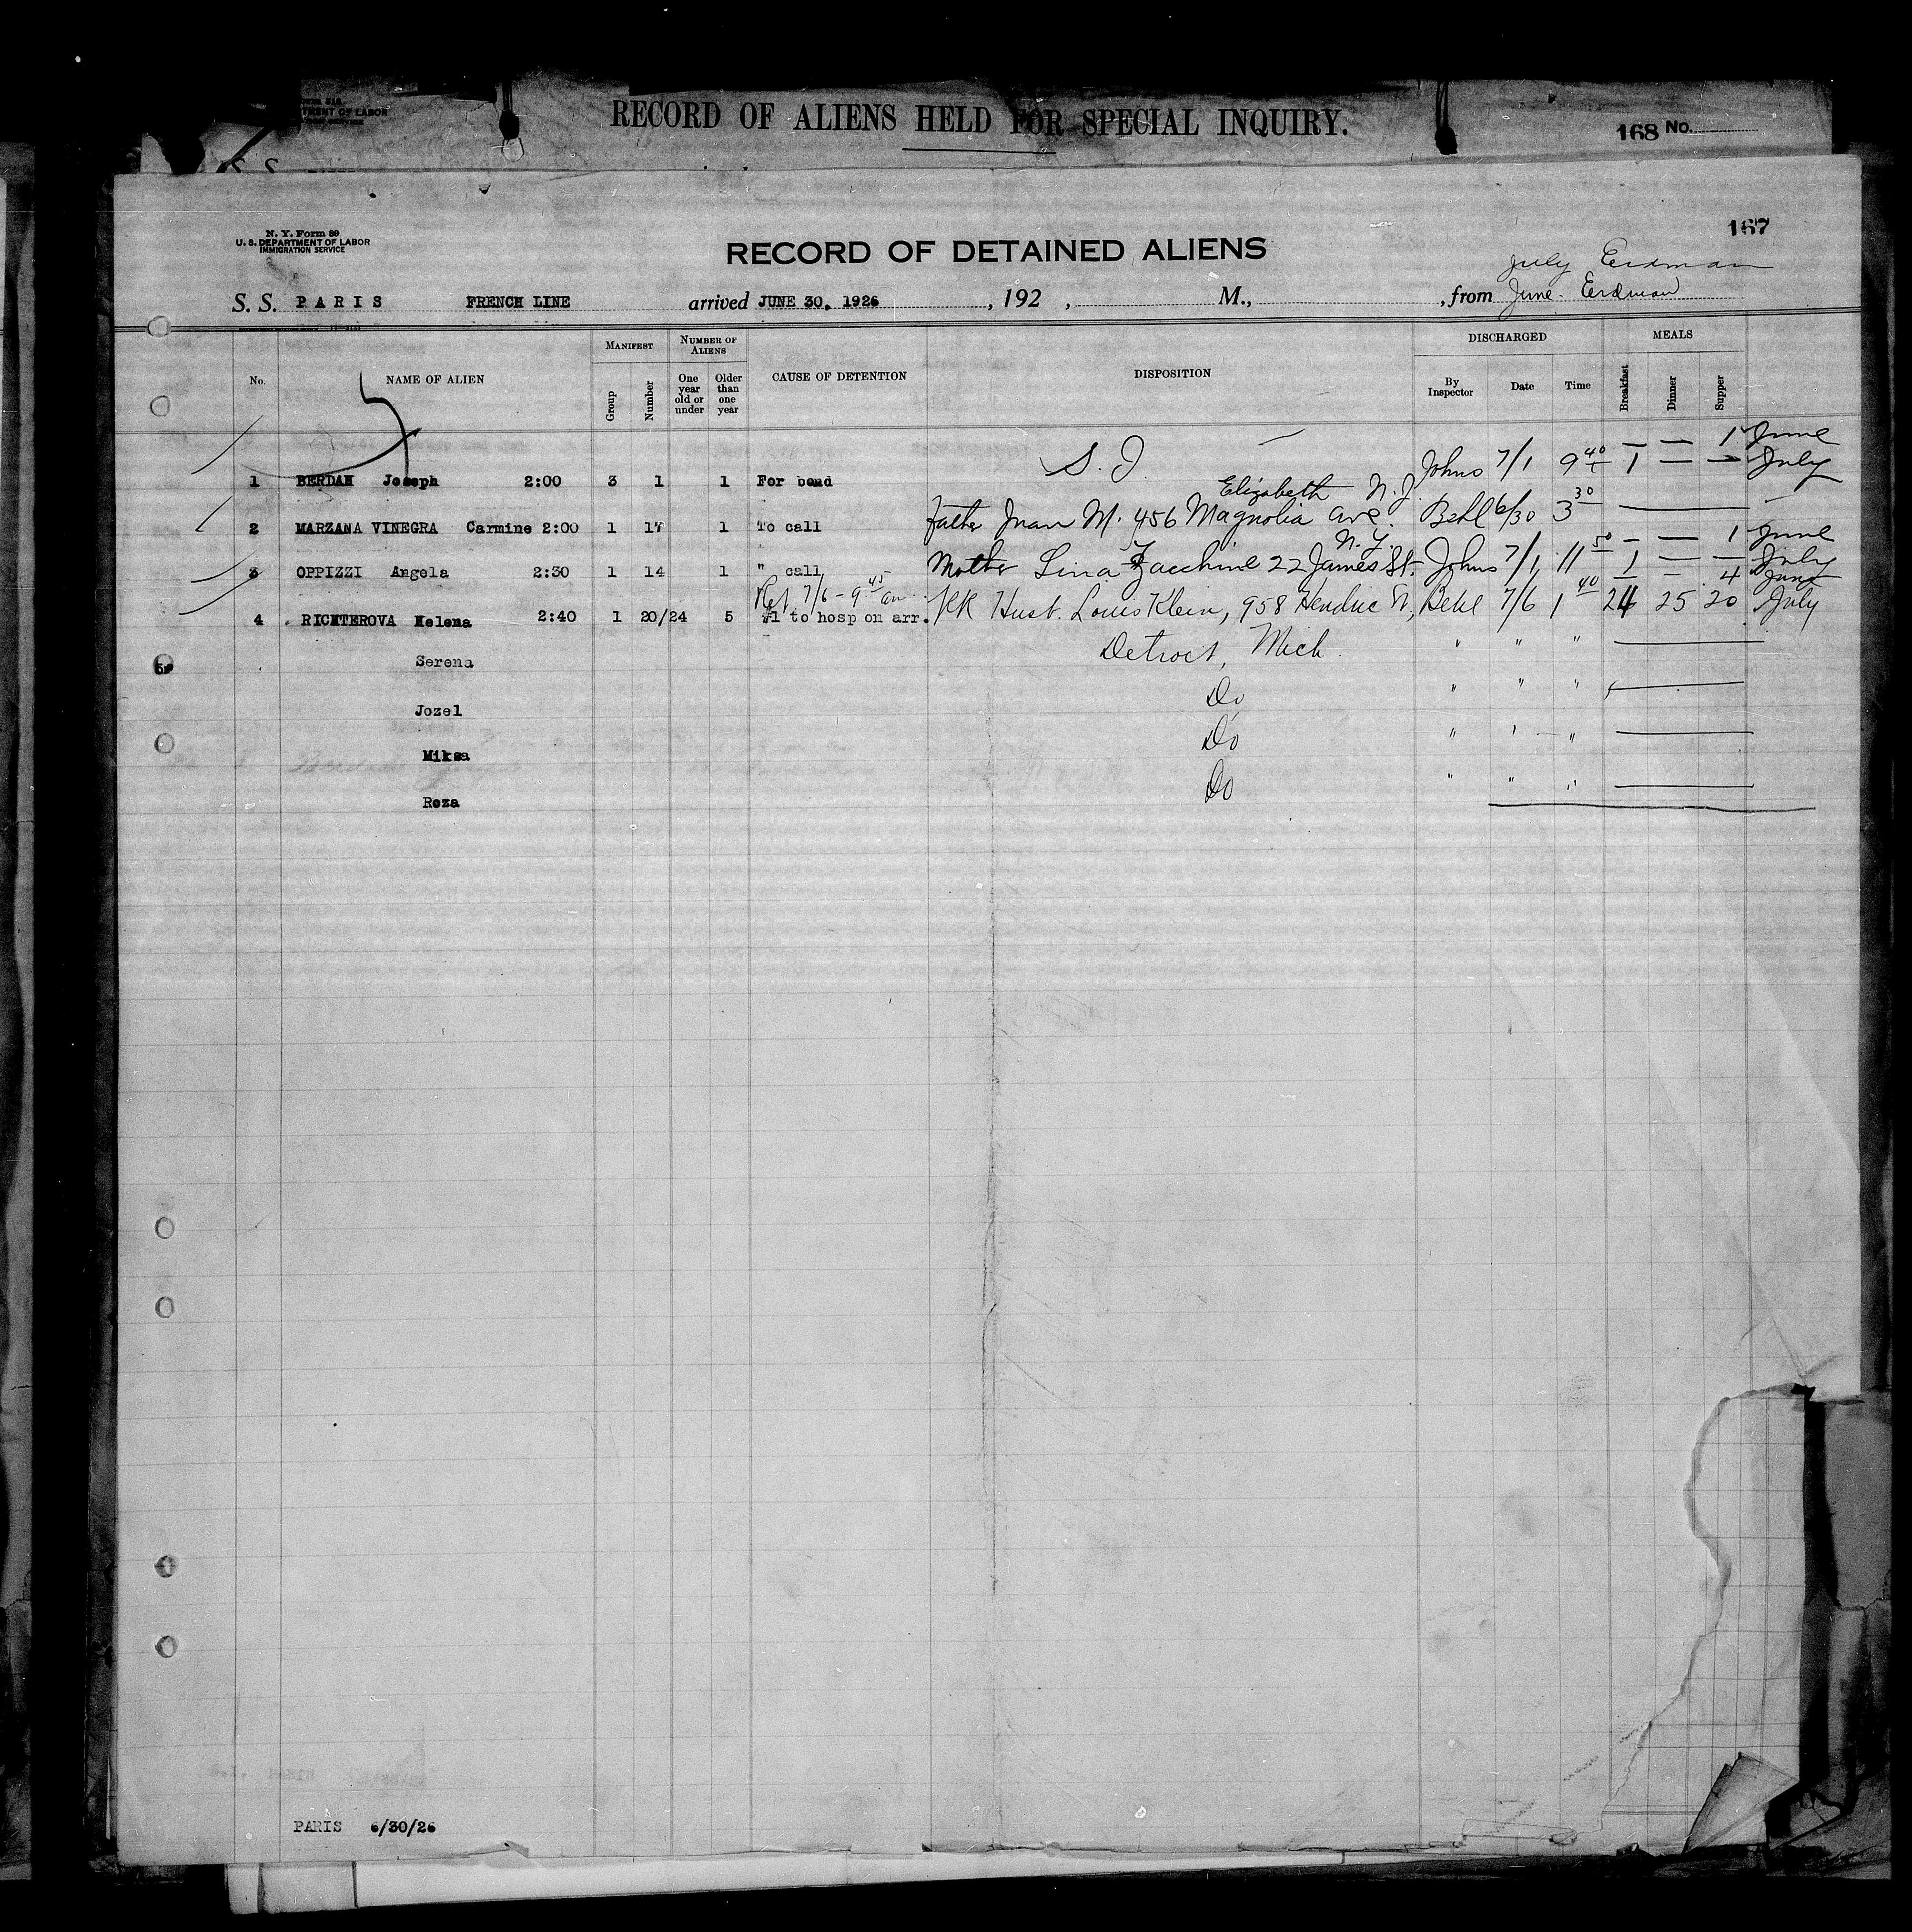 RECORD OF ALIENS HELD FOR SPECIAL INQUIRY.
168 No.
S. S.
167
N. Y. Form 89
U. S. DEPARTMENT OF LABOR
IMMIGRATION SERVICE
RECORD OF DETAINED ALIENS
July Erdman
S. S. PARIS FRENCH LINE arrived JUNE 30, 1926, 192 , M., , from June. Erdman
No. NAME OF ALIEN MANIFEST Group Number NUMBER OF ALIENS One year old or under Older than one year CAUSE OF DETENTION DISPOSITION DISCHARGED By Inspector Date Time MEALS Breakfast Dinner Supper
— — 1 June
1 BERDAN Joseph 2:00 3 1 1 For bond S. I. Johns 7/1 9 40 1 — — July
Elizabeth N.J.
2 MARZANA VINEGRA Carmine 2:00 1 17 1 To call Father Juan M. 456 Magnolia Ave. Behl 6/30 3 30
N.Y. — — 1 June
3 OPPIZZI Angela 2:30 1 14 1 " call Mother Lina Zacchini 22 James St. Johns 7/1 11 50 1 — — July
7/6 - 9 45 am — — 4 June
4 RICHTEROVA Helena 2:40 1 20/24 5 #1 to hosp on arr. RR Husb. Louis Klein, 958 St, Behl 7/6 1 40 24 25 20 July
Serena Detroit, Mich. " " "
Jozel Do " " "
Miksa Do " " "
Roza Do " " "
PARIS 6/30/26